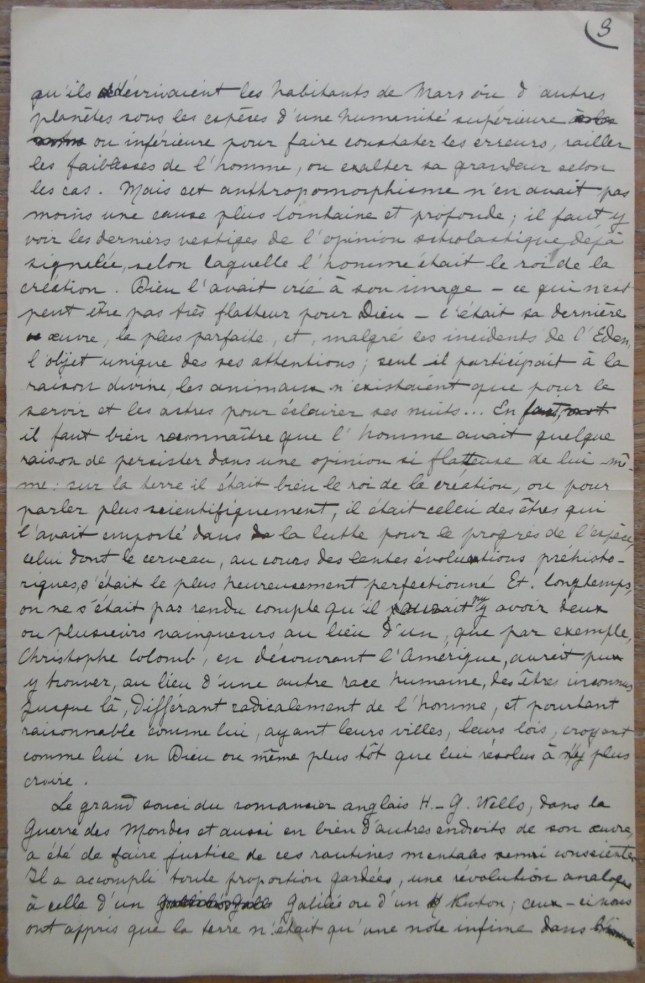 3
qu'ils décrivaient les habitants de Mars ou d'autres
planètes sous les espèces d'une humanité supérieure
ou inférieure pour faire constater les erreurs, railler
les faiblesses de l'homme, ou exalter sa grandeur selon
les cas. Mais cet anthropomorphisme n'en avait pas
moins une cause plus lointaine et profonde; il faut y
voir les derniers vestiges de l'opinion scholastique déjà
signalée, selon laquelle l'homme était le roi de la
création. Dieu l'avait créé à son image - ce qui n'est
peut être pas très flatteur pour Dieu - c'était sa dernière
œuvre, la plus parfaite, et, malgré les incidents de l'Eden,
l'objet unique des ses attentions; seul il participait à la
raison divine, les animaux n'existaient que pour le
servir et les astres pour éclairer ses nuits... En
il faut bien reconnaître que l'homme avait quelque
raison de persister dans une opinion si flatteuse de lui-mê-
me: sur la terre il était bien le roi de la création, ou pour
parler plus scientifiquement, il était celui des êtres qui
l'avait emporté dans la lutte pour le progrès de l'espèce,
celui dont le cerveau, au cours des lentes évolutions préhisto-
riques, s'était le plus heureusement perfectionné. Et longtemps,
on ne s'était pas rendu compte qu'il y avoir deux
ou plusieurs vainqueurs au lieu d'un, que par exemple,
Christophe Colomb, en découvrant l'Amérique, aurait pu
y trouver, au lieu d'une autre race humaine, des êtres inconnus
jusque là, différant radicalement de l'homme, et pourtant
raisonnable comme lui, ayant leurs villes, leurs lois, croyant
comme lui en Dieu ou même plus tôt que lui résolus à n'y plus
croire.
Le grand souci du romancier anglais H.-G. Wells, dans la
Guerre des Mondes et aussi en bien d'autres endroits de son œuvre,
a été de faire justice de ces routines mentales semi conscientes.
Il a accompli toute proportion gardées, une révolution analogue
à celle d'un Galilée ou d'un Newton; ceux-ci nous
ont appris que la terre n'était qu'une note infime dans